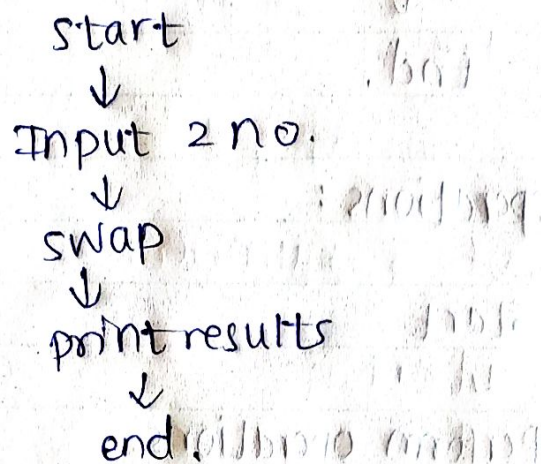 start
↓
Input 2 no.
↓
swap
↓
print results
↓
end.